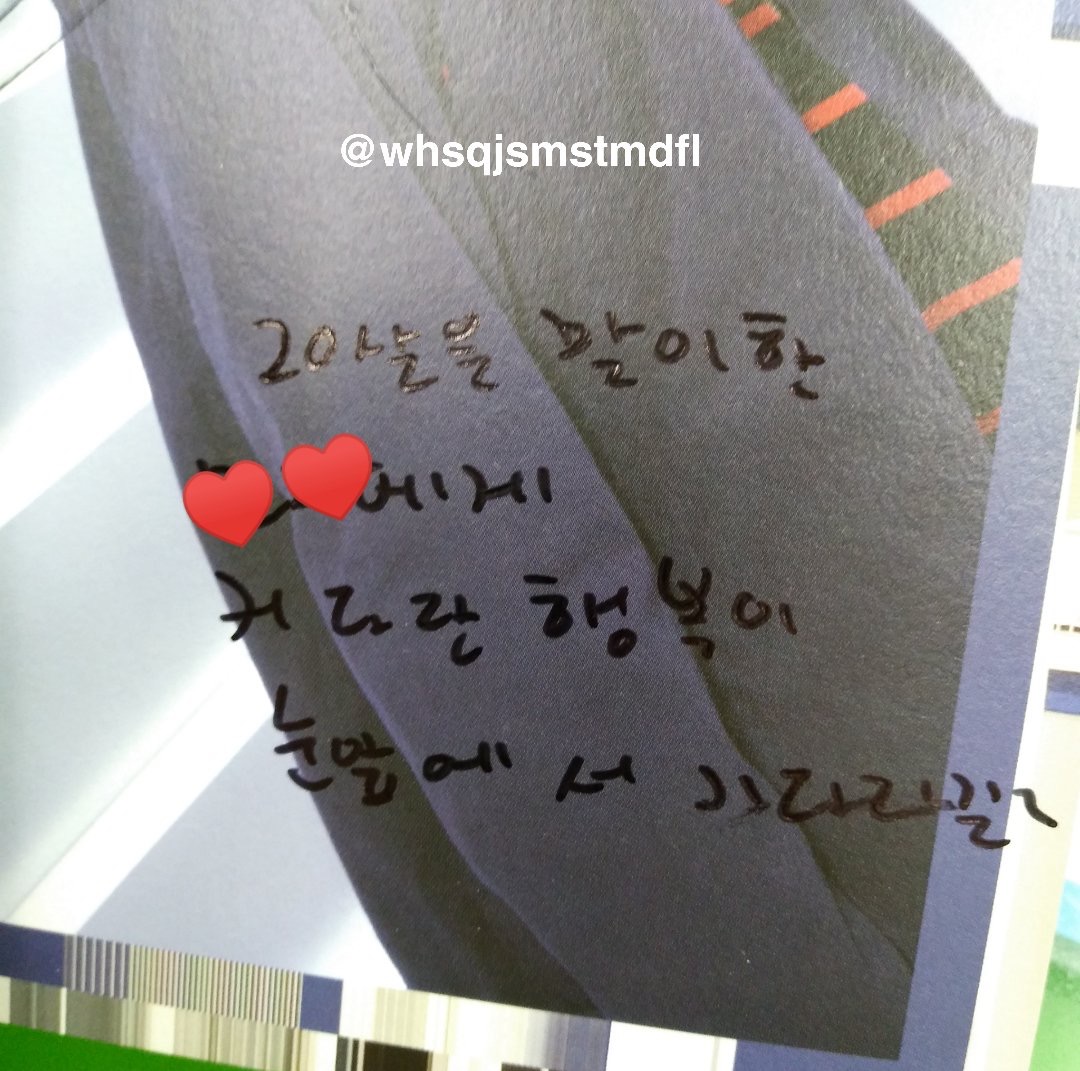 @whsqjsmstmdfl
20살을 맞이한
에게
커다란 행복이
눈앞에서 기다리길~